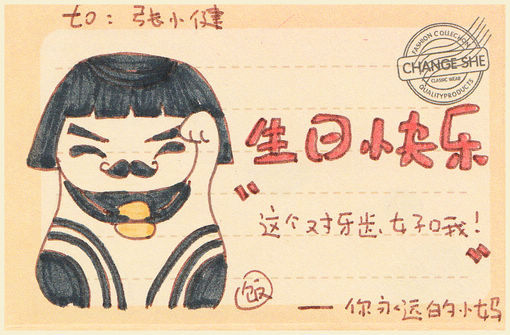 to: 张小健
FASHION COLLECTION
CHANGE SHE
CLASSIC WEAR
QUALITYPRODUCTS
生日快乐
“这个对牙齿、好哦!”
饭
—— 你永远的小妈